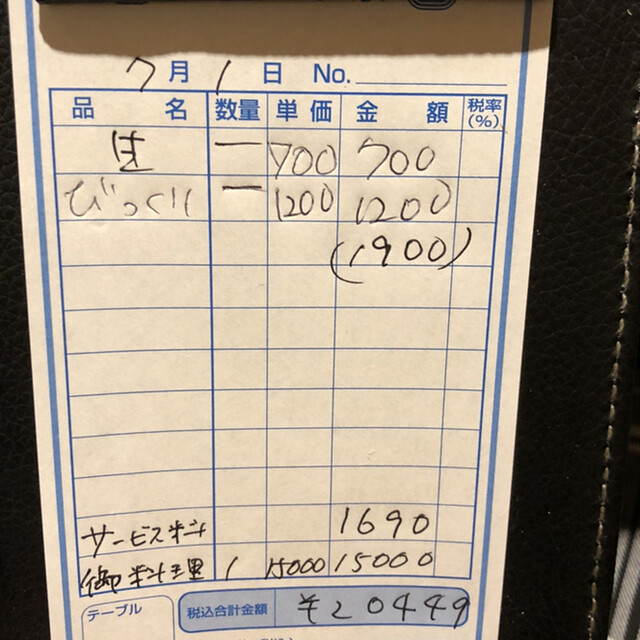 7月1日 No.
品名 数量 単価 金額 税率(%)
生 一 700 700
びっくり 一 1200 1200
(1900)
サービス料 1690
御料理 1 15000 15000
テーブル 税込合計金額 ¥20449